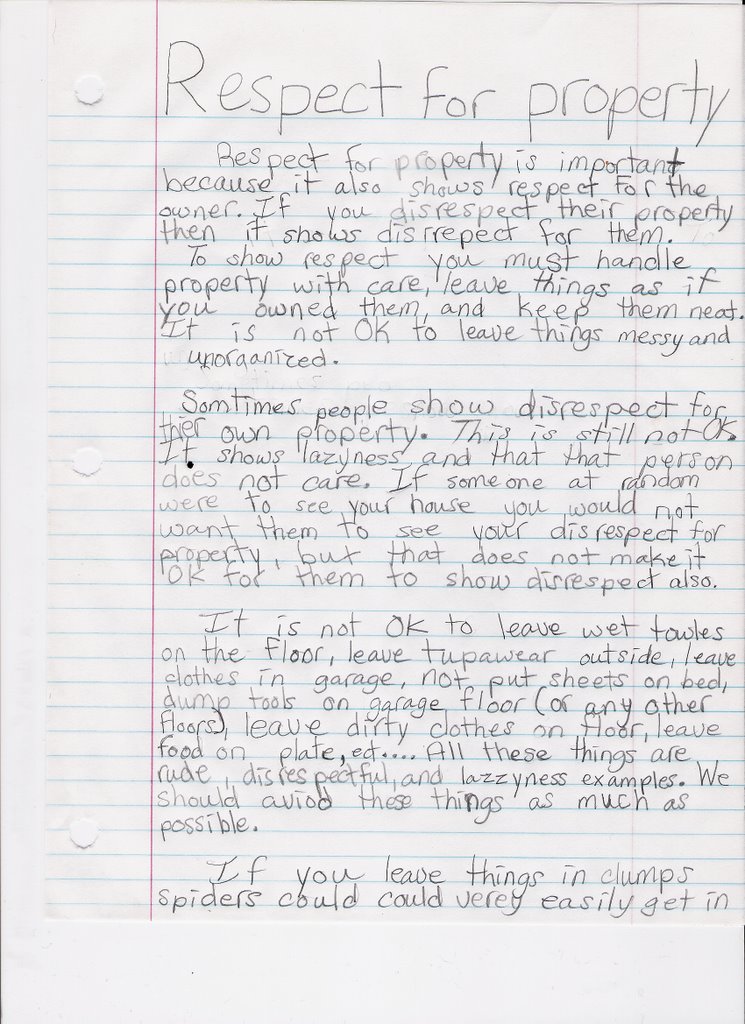 Respect for property
Respect for property is important
because it also shows respect for the
owner. If you disrespect their property
then it shows disrrepect for them.
To show respect you must handle
property with care, leave things as if
you owned them, and keep them neat.
It is not OK to leave things messy and
unorganized.
Somtimes people show disrespect for
thier own property. This is still not OK.
It shows lazyness and that that person
does not care. If someone at random
were to see your house you would not
want them to see your disrespect for
property, but that does not make it
OK for them to show disrespect also.
It is not OK to leave wet towles
on the floor, leave tupawear outside, leave
clothes in garage, not put sheets on bed,
dump tools on garage floor (or any other
floors), leave dirty clothes on floor, leave
food on plate, ect.... All these things are
rude, disrespectful, and lazzyness examples. We
should aviod these things as much as
possible.
If you leave things in clumps
spiders could could verey easily get in